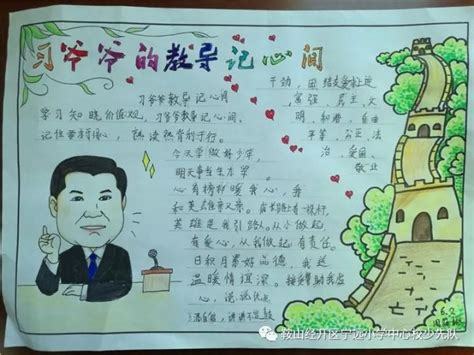 习爷爷的教导记心间
习爷爷教导记心间
学习知晓价值观，习爷爷教导记心间，
记住要求搞心，熟读熟背利于行。
今天学做好少年，
明天事业生本
心有榜样暖我心，
和英雄
英雄是我引路人。从小做起
有爱心，从我做起有责任。
日积月累好品德，我送
温暖情谊深。接受帮助我虚
心，说说优点
富强，民主，文
明，和谐，自由
平等，公正，法
治，爱国，
敬业
6.2
鞍山经开区宁远小学中心校少先队